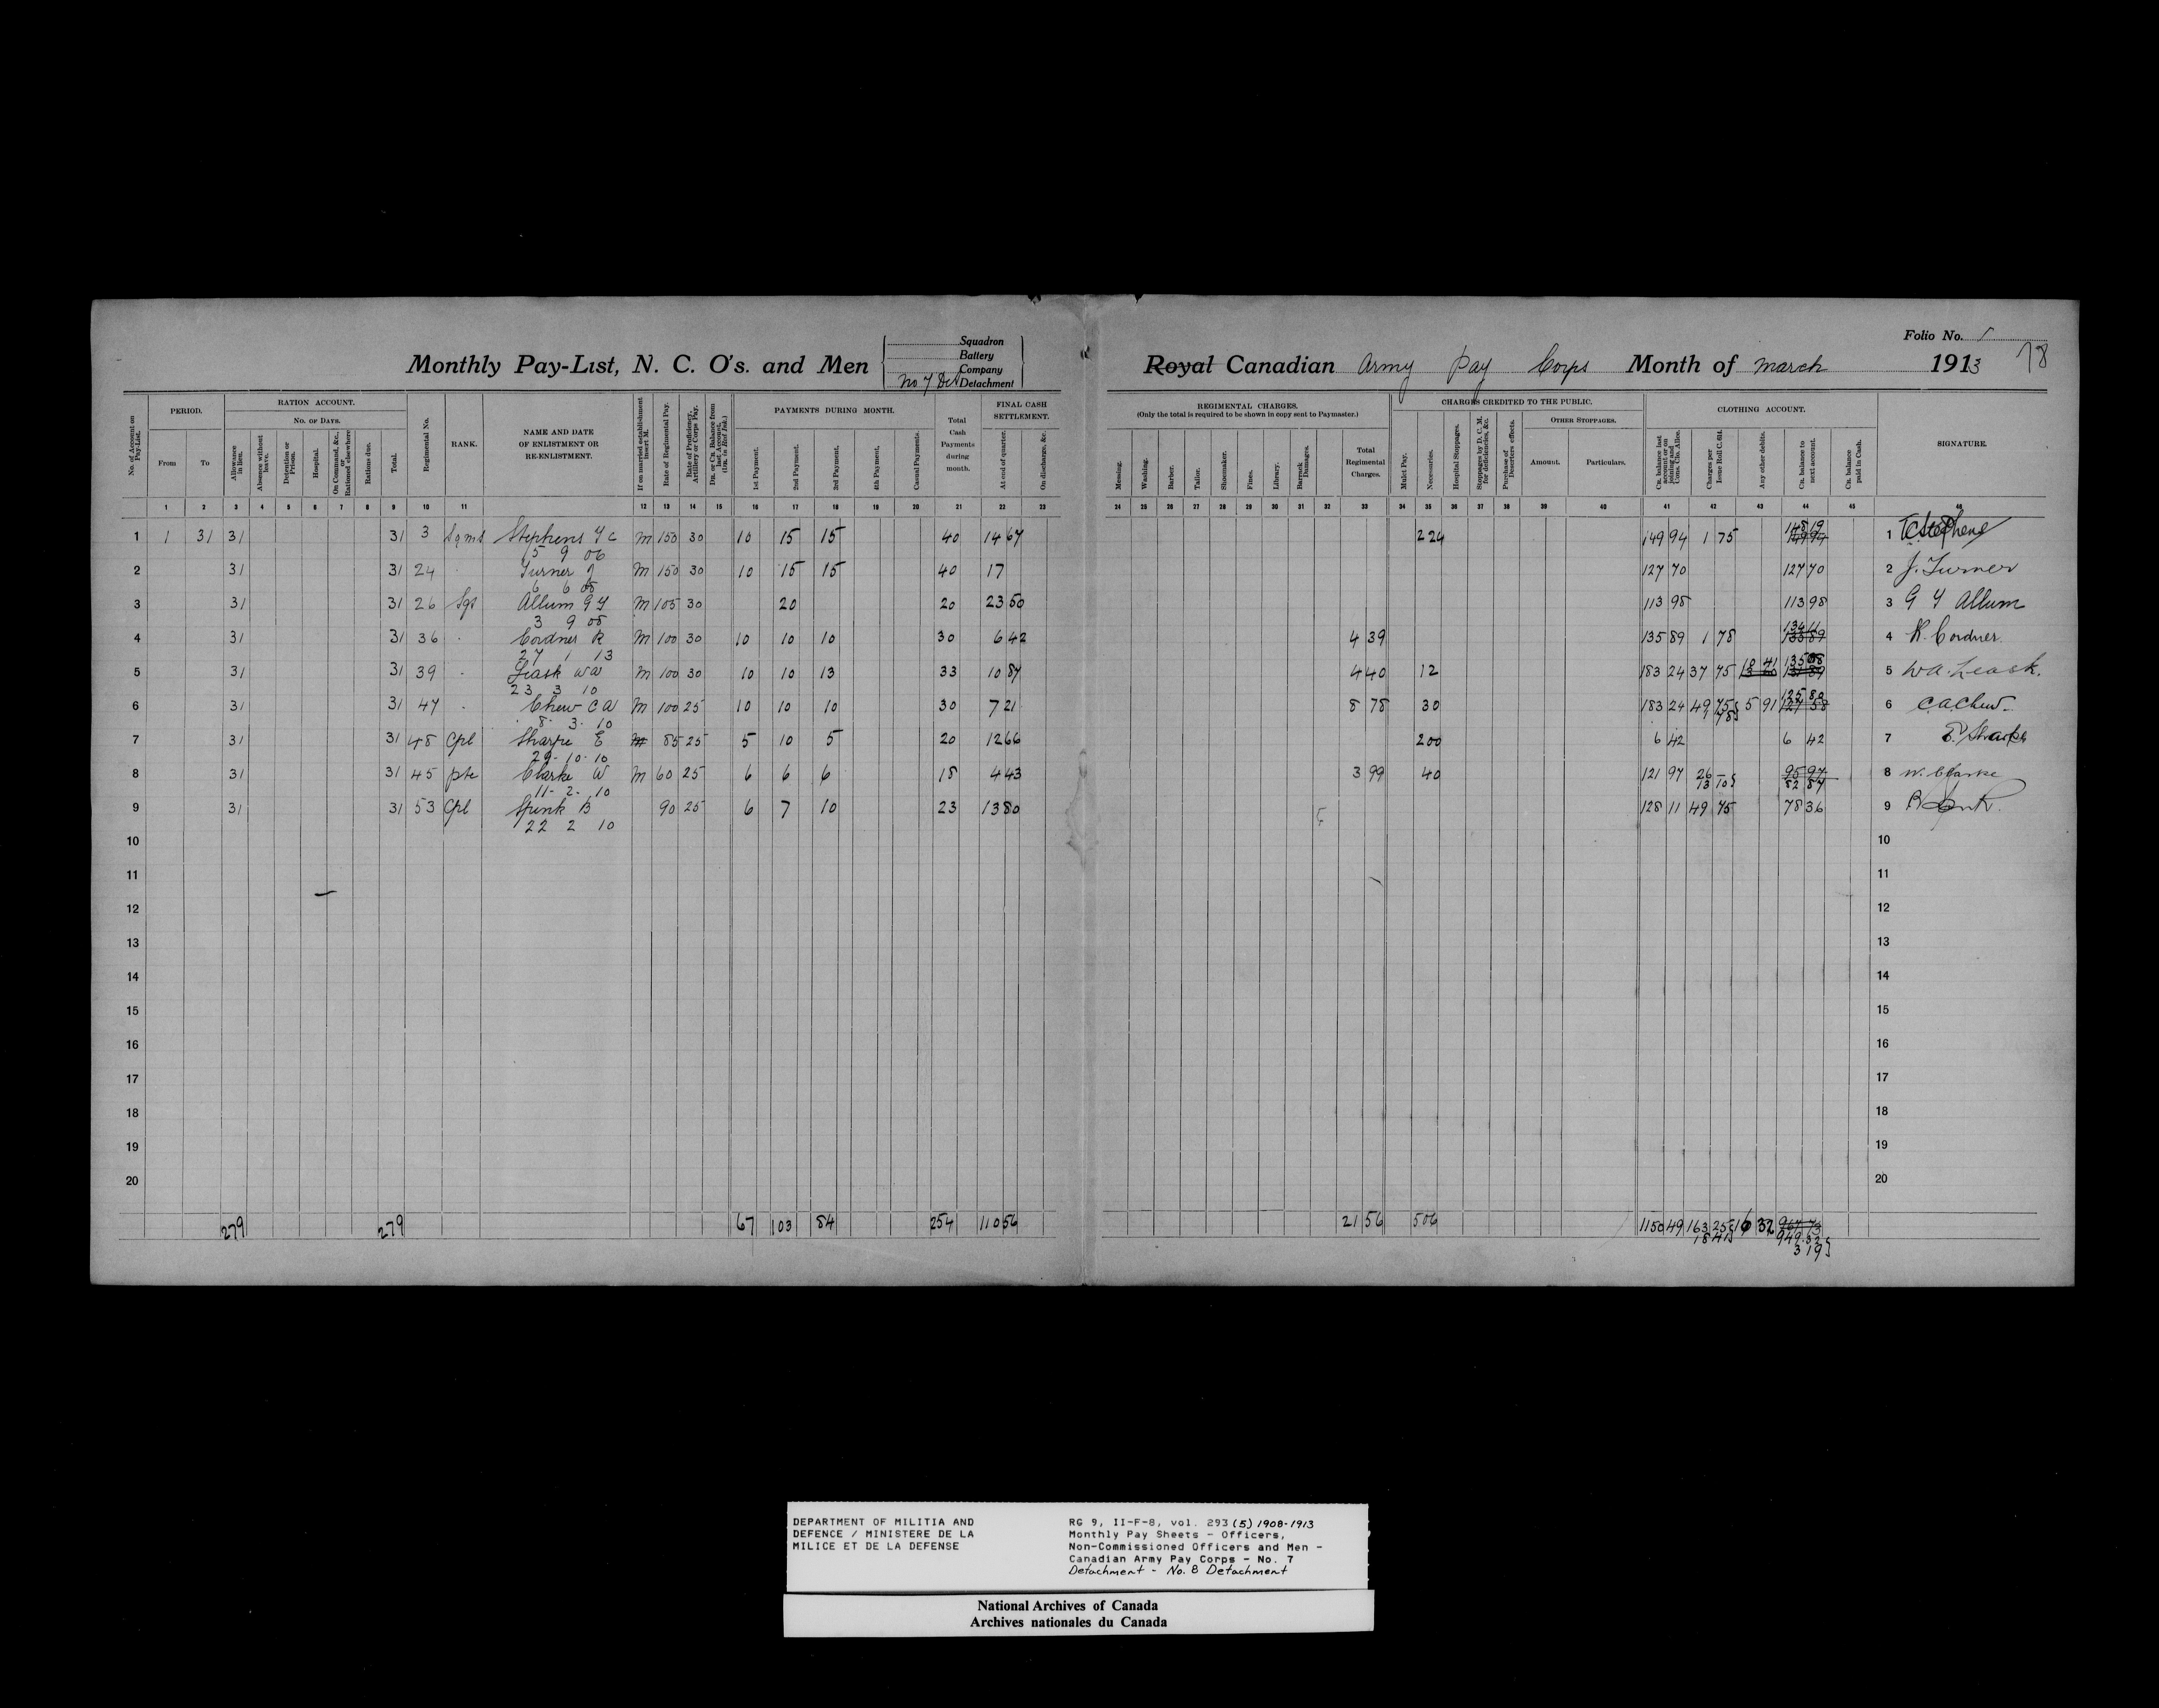 Folio No. 1
Monthly Pay-List, N. C. O's. and Men
Squadron
Battery
Company
No 7 Det Detachment
Royal Canadian Army Pay Corps Month of March 1913 78
No. of Account on Pay-List.
PERIOD.
From
To
RATION ACCOUNT.
No. of Days.
Allowance in lieu.
Absence without leave.
Detention or Prison.
Hospital.
On Command, &c., or Rationed elsewhere
Rations due.
Total.
Regimental No.
RANK.
NAME AND DATE
OF ENLISTMENT OR
RE-ENLISTMENT.
If on married establishment insert M.
Rate of Regimental Pay.
Rate of Proficiency, Artillery or Corps Pay.
Dr. or Cr. Balance from last Account, (Dr. in Red Ink.)
PAYMENTS DURING MONTH.
1st Payment.
2nd Payment.
3rd Payment.
4th Payment.
Casual Payments.
Total Cash Payments during month.
FINAL CASH SETTLEMENT.
At end of quarter.
On discharge, &c.
REGIMENTAL CHARGES.
(Only the total is required to be shown in copy sent to Paymaster.)
Messing.
Washing.
Barber.
Tailor.
Shoemaker.
Fines.
Library.
Barrack Damages.
Total Regimental Charges.
CHARGES CREDITED TO THE PUBLIC.
Mulct Pay.
Necessaries.
Hospital Stoppages.
Stoppages by D. C. M. for deficiencies, &c.
Purchase of Deserters effects.
OTHER STOPPAGES.
Amount.
Particulars.
CLOTHING ACCOUNT.
Cr. balance last account or on joining and Cons. Clo. Allce.
Charges per Issue Roll C. 614.
Any other debits.
Cr. balance to next account.
Cr. balance paid in Cash.
SIGNATURE.
1 2 3 4 5 6 7 8 9 10 11 12 13 14 15 16 17 18 19 20 21 22 23 24 25 26 27 28 29 30 31 32 33 34 35 36 37 38 39 40 41 42 43 44 45 46
1 1 31 31 31 3 Sqms Stephens T C M 150 30 10 15 15 40 14 67 2 24 149 94 1 75 148 19 1 T C Stephens
15 9 06
2 31 31 24 Turner J M 150 30 10 15 15 40 17 127 70 127 70 2 J. Turner
6 6 08
3 31 31 26 Sgt Allum G Y M 105 30 20 20 23 50 113 98 113 98 3 G Y Allum
3 9 08
4 31 31 36 Cordner R M 100 30 10 10 10 30 6 42 4 39 135 89 1 78 134 11 4 R. Cordner.
27 1 13
5 31 31 39 Leask W A M 100 30 10 10 13 33 10 87 4 40 12 183 24 37 75 18 41 5 W A. Leask.
23 3 10
6 31 31 47 Chew C A M 100 25 10 10 10 30 7 21 8 78 30 183 24 49 75 5 91 125 80 6 C. A. Chew
8. 3. 10
7 31 31 48 Cpl Sharpe E M 85 25 5 10 5 20 12 66 2 00 6 42 6 42 7 E. Sharpe
29-10-10
8 31 31 45 Pte Clarke W M 60 25 6 6 6 18 4 43 3 99 40 121 97 26 95 97 8 W. Clarke
11-2-10 13 10 82 87
9 31 31 53 Cpl Spink B 90 25 6 7 10 23 13 80 128 11 49 75 78 36 9 B Spink.
22 2 10
10 10
11 11
12 12
13 13
14 14
15 15
16 16
17 17
18 18
19 19
20 20
279 279 67 103 84 254 110 56 21 56 5 06 1150 49 163 25
18 41 949 32
3 19
DEPARTMENT OF MILITIA AND
DEFENCE / MINISTERE DE LA
MILICE ET DE LA DEFENSE
RG 9, II-F-8, vol. 293 (5) 1908-1913
Monthly Pay Sheets - Officers,
Non-Commissioned Officers and Men -
Canadian Army Pay Corps - No. 7
Detachment - No. 8 Detachment
National Archives of Canada
Archives nationales du Canada